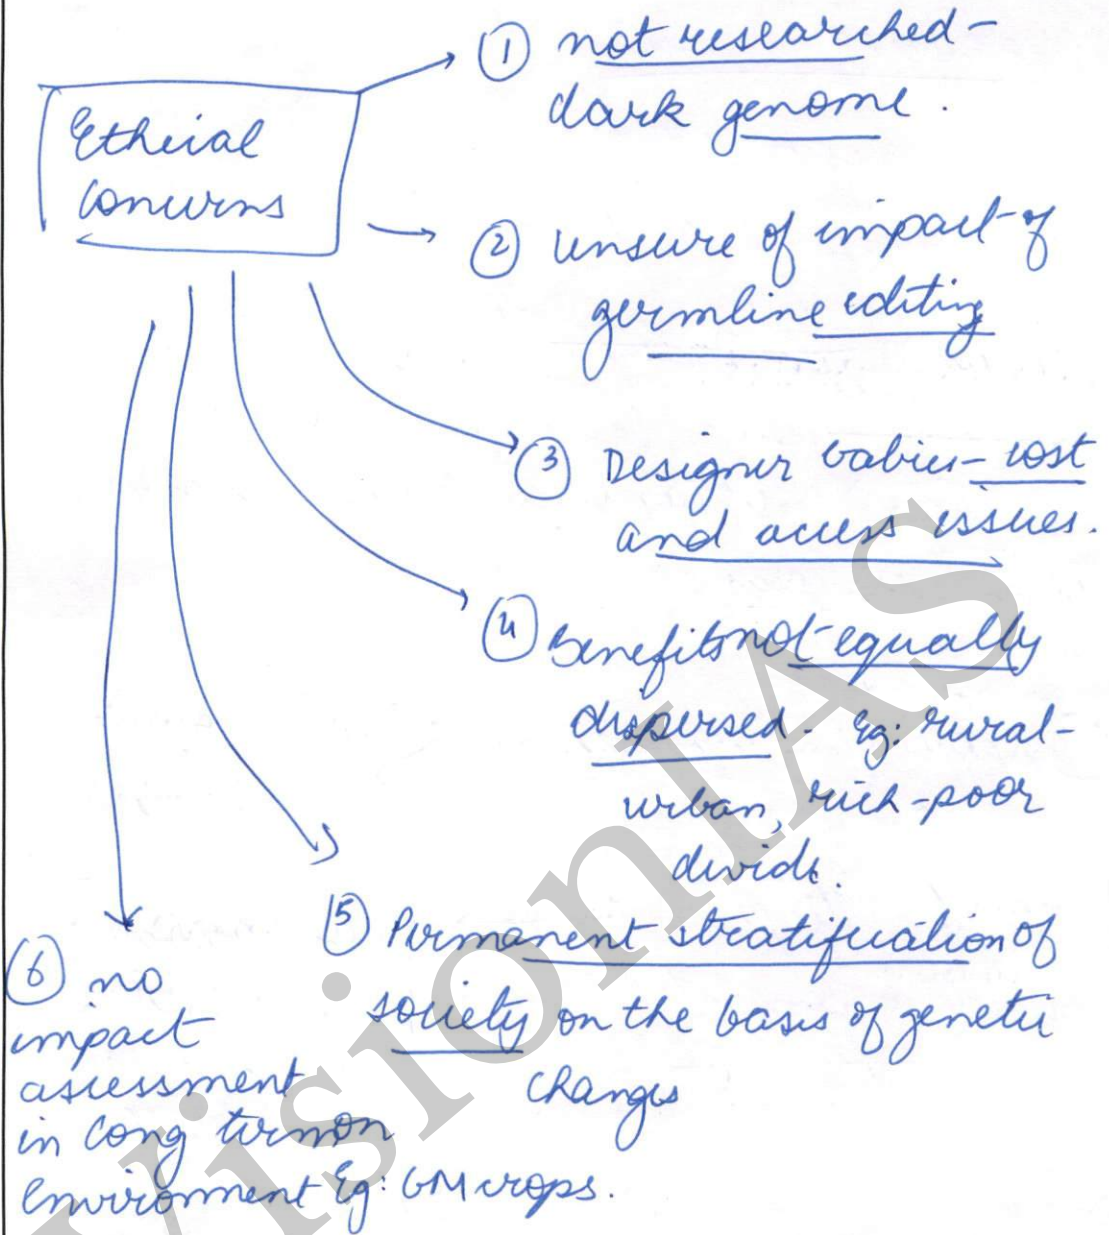 Ethical
concerns
① not researched -
dark genome.
② unsure of impact of
germline editing
③ Designer babies - cost
and access issues.
④ Benefits not equally
dispersed. Eg: rural -
urban, rich - poor
divide.
⑤ Permanent stratification of
society on the basis of genetic
changes
⑥ no
impact
assessment
in long term on
environment Eg: GM crops.
VisionIAS